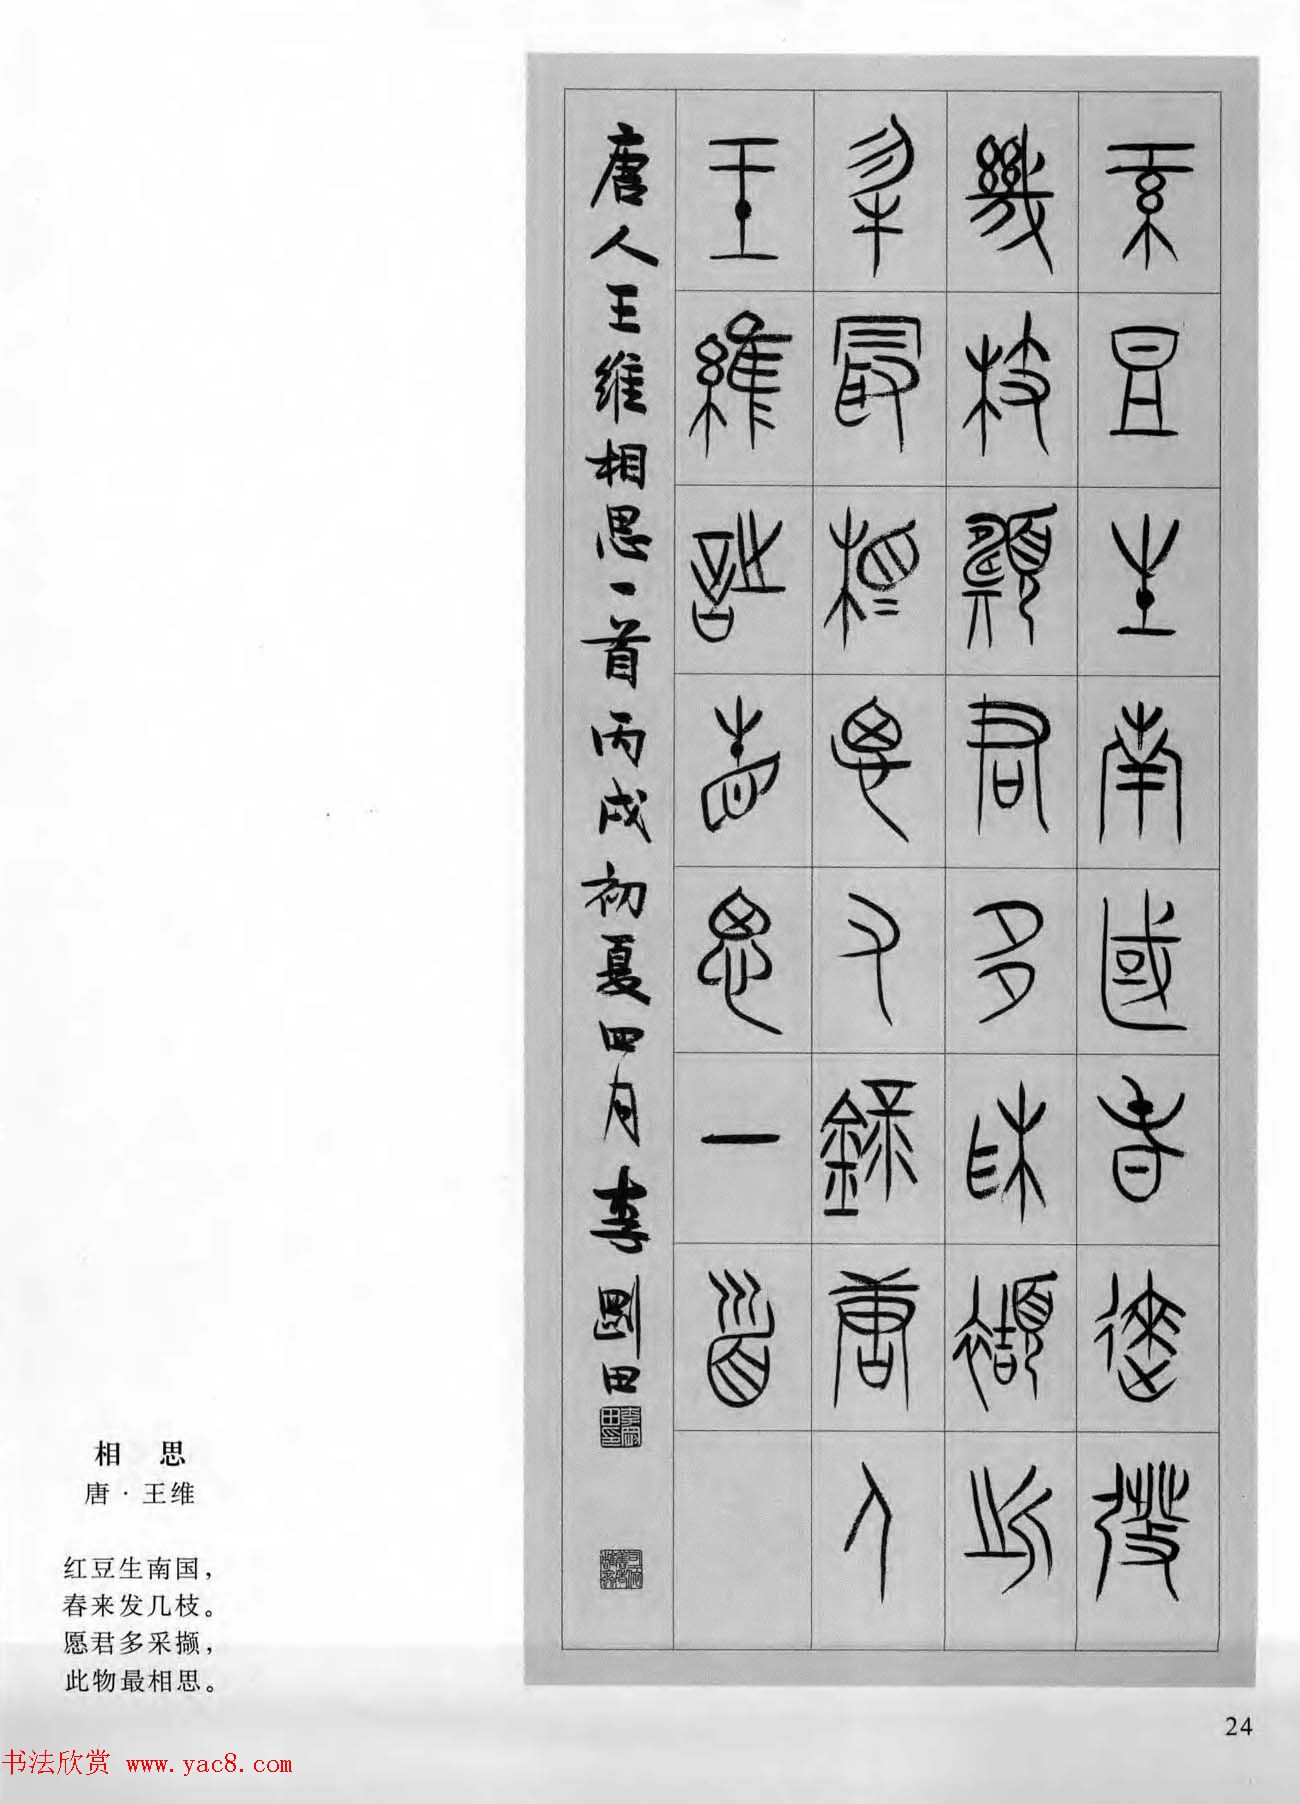 紅豆生南國春來發
幾枝願君多采擷此
物最相思又錄唐人
王維詩相思一首
唐人王維相思一首丙戌初夏四月李剛田
相 思
唐·王维
红豆生南国，
春来发几枝。
愿君多采撷，
此物最相思。
24
书法欣赏 www.yac8.com